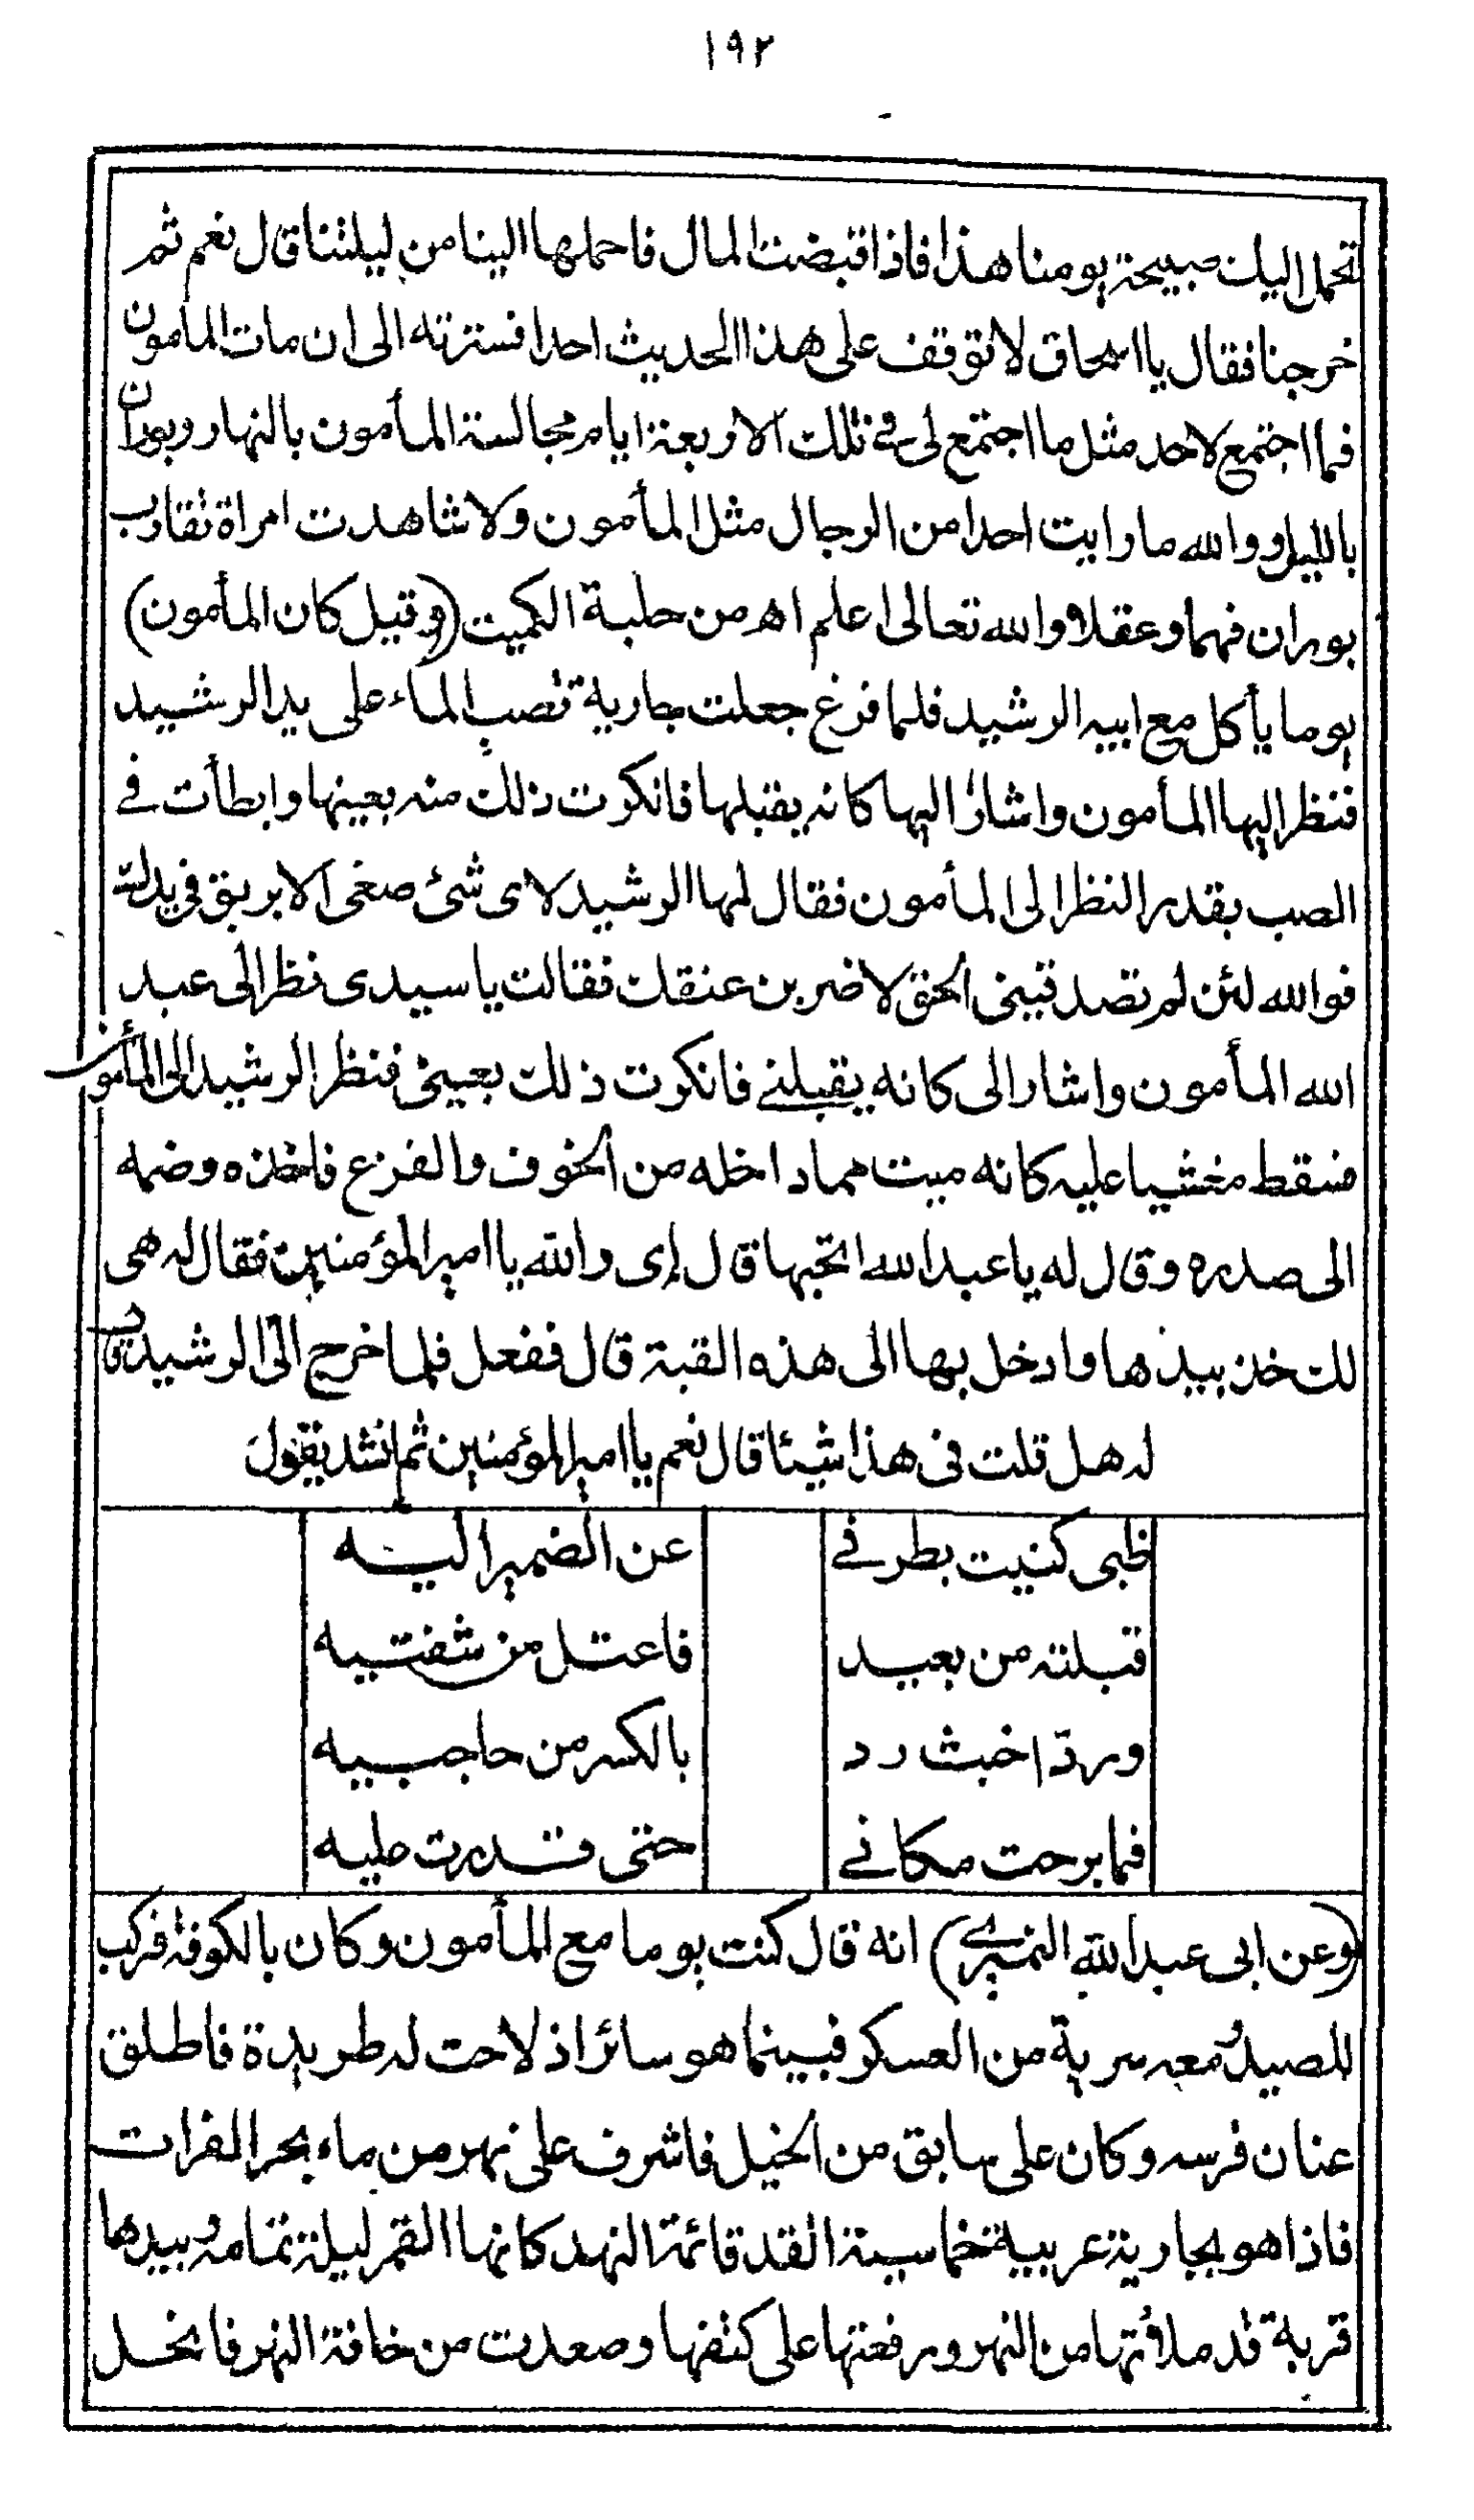 ١٩٢
تحمل اليك صبيحة يومنا هذا فاذا قبضت المال فاحملها الينا من ليلتنا قال نعم ثم
خرجنا فقال يا اسحاق لا توقف على هذا الحديث احدا فسترته الى ان مات المأمون
فما اجتمع لاحد مثل ما اجتمع لى في تلك الاربعة ايام مجالسة المأمون بالنهار وبوران
بالليل ووالله ما رايت احدا من الرجال مثل المأمون ولا شاهدت امراة تقارب
بوران فهما وعقلا والله تعالى اعلم اه من حلبة الكميت (وقيل كان المأمون)
يوما يأكل مع ابيه الرشيد فلما فرغ جعلت جارية تصب الماء على يد الرشيد
فنظر اليها المأمون واشار اليها كانه يقبلها فانكرت ذلك منه بعينها وابطأت في
الصب بقدر النظر الى المأمون فقال لها الرشيد لاى شئ صغى الابريق في يدك
فوالله لئن لم تصدقينى الحق لاضربن عنقك فقالت يا سيدى نظر الى عبد
الله المأمون واشار الى كانه يقبلنى فانكرت ذلك بعينى فنظر الرشيد الى المأمون
فسقط مغشيا عليه كانه ميت مما داخله من الخوف والفزع فاخذه وضمه
الى صدره وقال له يا عبد الله اتحبها قال إى والله يا امير المؤمنين فقال له هى
لك خذ بيدها وادخل بها الى هذه القبة قال ففعل فلما خرج الى الرشيد قال
له هل قلت فى هذا شيئا قال نعم يا امير المؤمنين ثم انشد يقول
ظبى كنيت بطرفي عن الضمير اليه
قبلته من بعيد فاعتل من شفتيه
ورد اخبث رد بالكسر من حاجبيه
فما برحت مكاني حتى قدرت عليه
(وعن ابى عبد الله النميرى) انه قال كنت يوما مع المأمون وكان بالكوفة فركب
للصيد معه سرية من العسكر فبينما هو سائر اذ لاحت له طريدة فاطلق
عنان فرسه وكان على سابق من الخيل فاشرف على نهر من ماء بحر الفرات
فاذا هو بجارية عربية خماسية القد قائمة النهد كانها القمر ليلة تمامه وبيدها
قربة قد ملأتها من النهر ورفعتها على كتفها وصعدت من حافة النهر فانحل